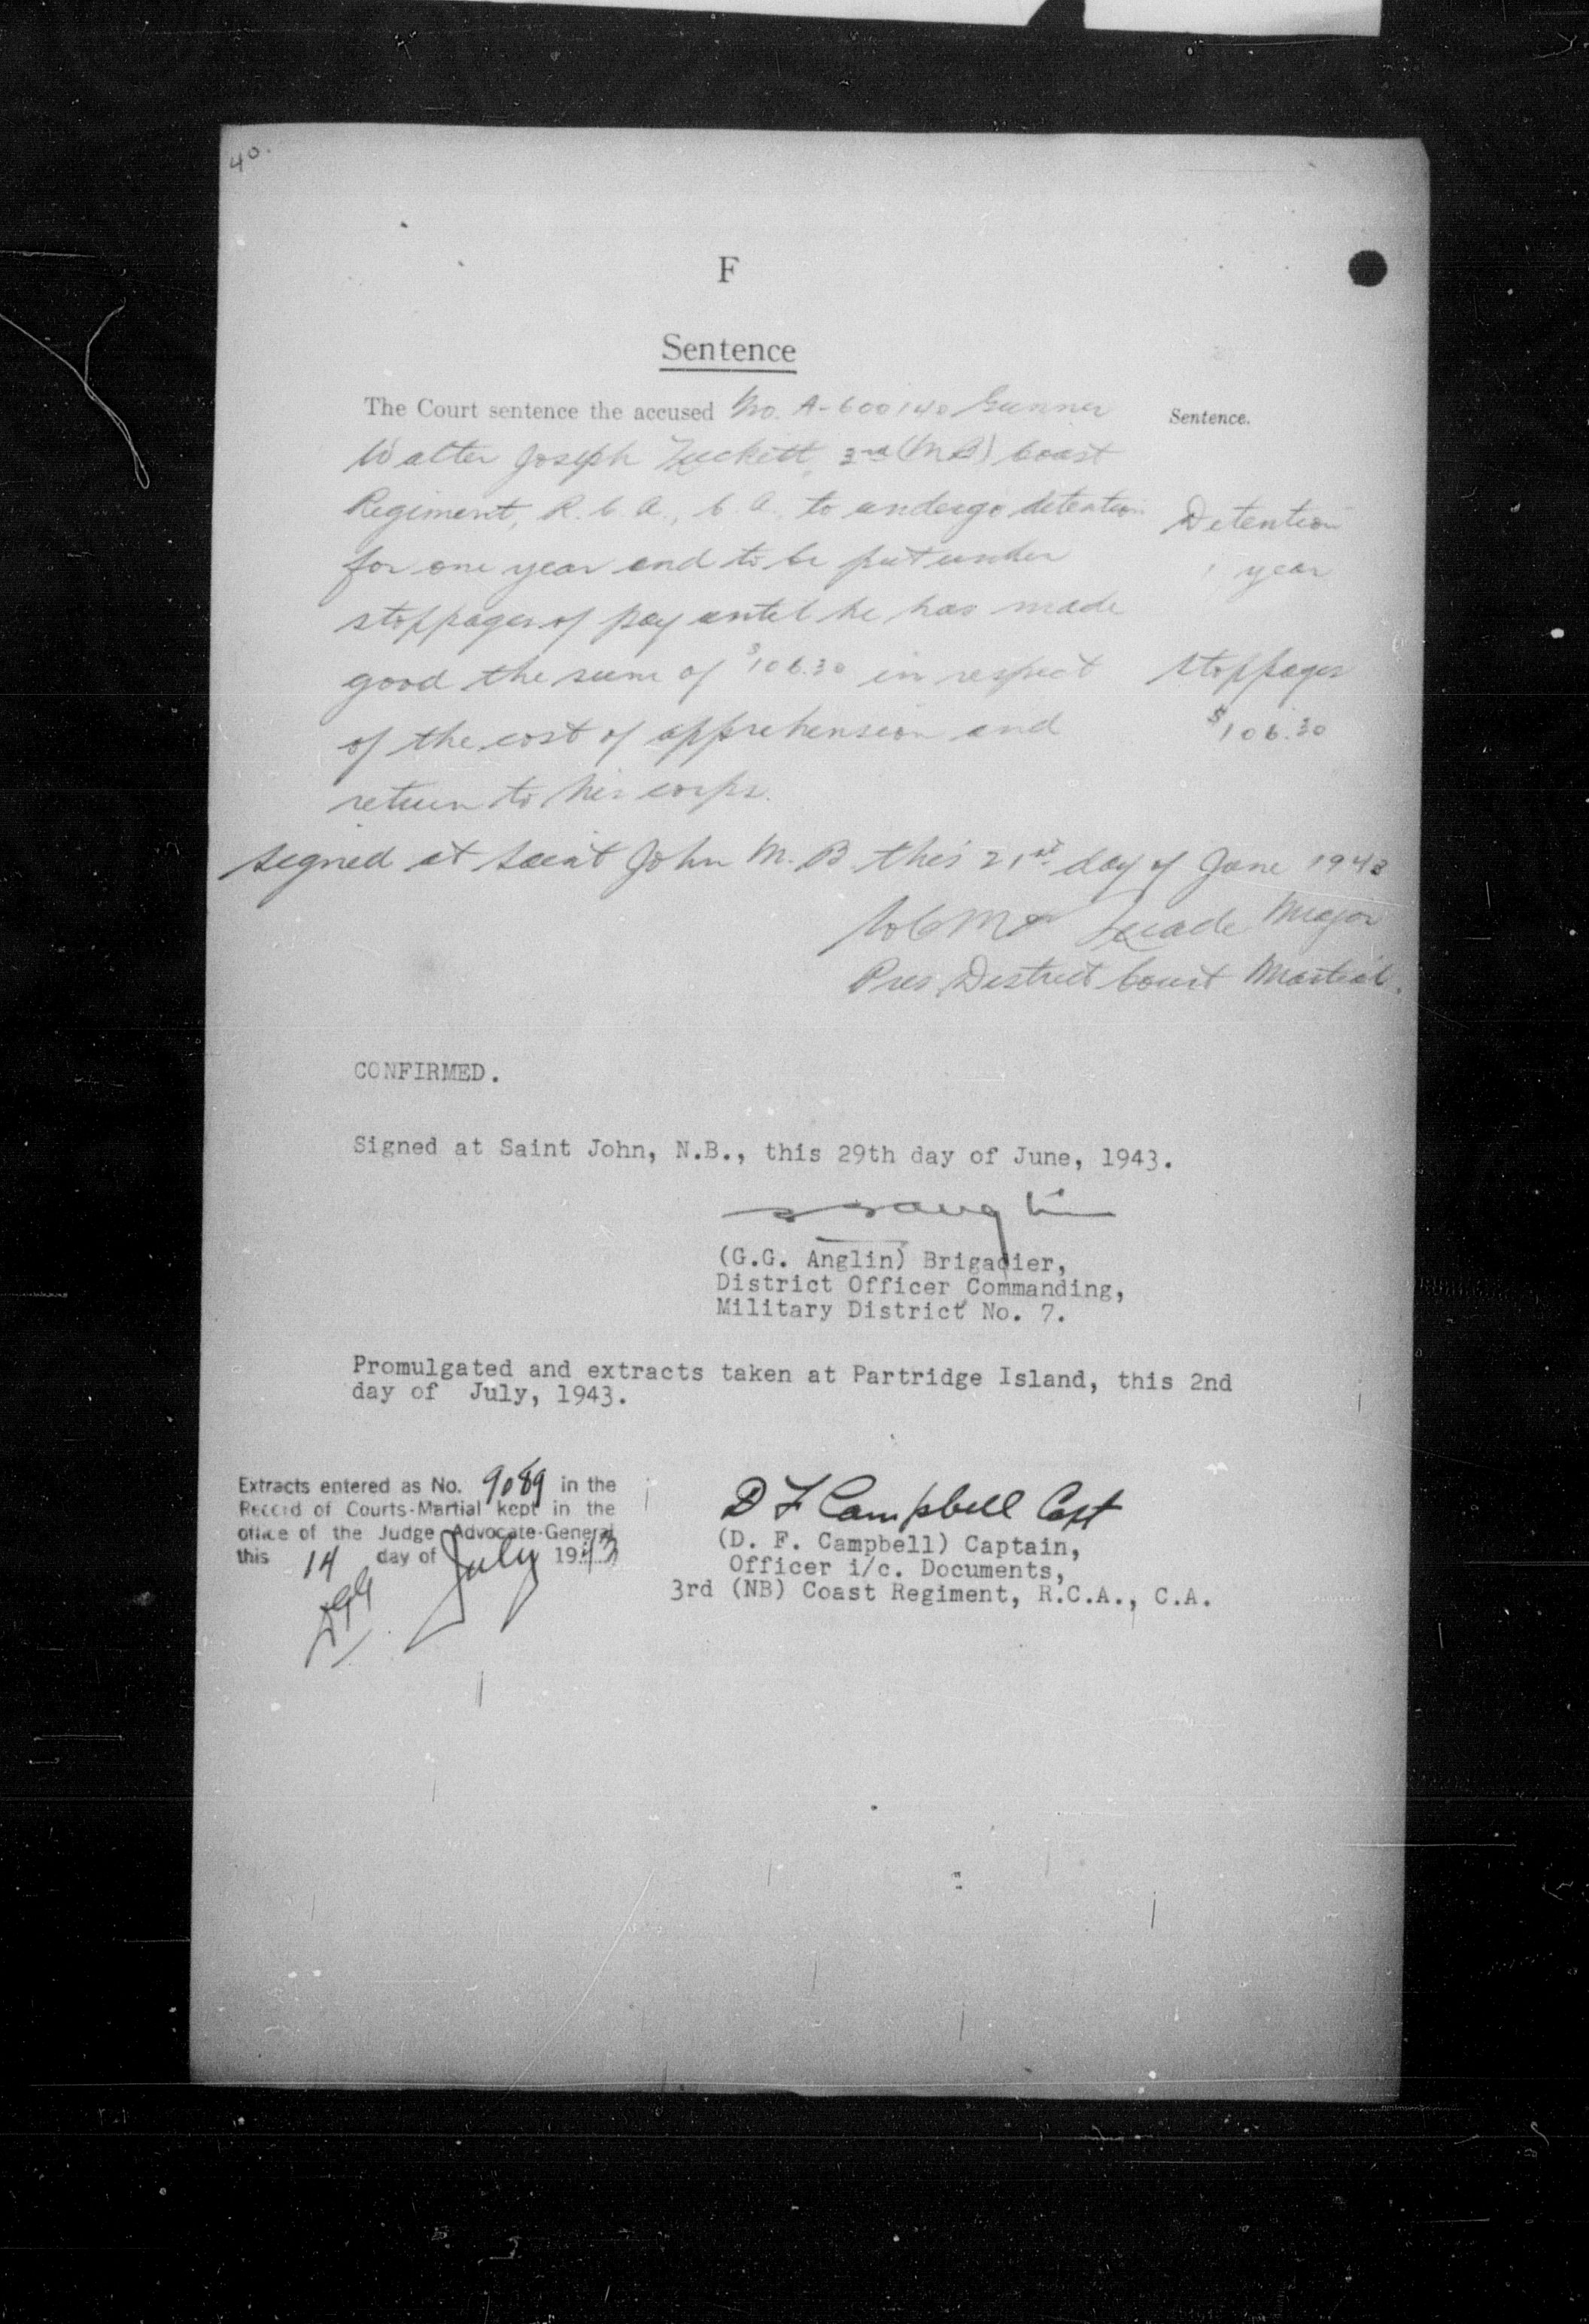 40.
F
Sentence
The Court sentence the accused No. A-600140 Gunner
Sentence.
Walter Joseph Tuckett, 3rd (NB) Coast
Regiment, R.C.A., C.A. to undergo detention
Detention
for one year and to be put under
1 year
stoppages of pay until he has made
good the sum of $106.30 in respect
stoppages
of the cost of apprehension and
$106.30
return to his corps.
signed at Saint John N.B. this 21st day of June 1943
Major
Pres. District Court Martial.
CONFIRMED.
Signed at Saint John, N.B., this 29th day of June, 1943.
(G.G. Anglin) Brigadier,
District Officer Commanding,
Military District No. 7.
Promulgated and extracts taken at Partridge Island, this 2nd
day of July, 1943.
Extracts entered as No. 9089 in the
Record of Courts-Martial kept in the
office of the Judge Advocate-General
this 14 day of July 1943
D F Campbell Capt
(D. F. Campbell) Captain,
Officer i/c. Documents,
3rd (NB) Coast Regiment, R.C.A., C.A.